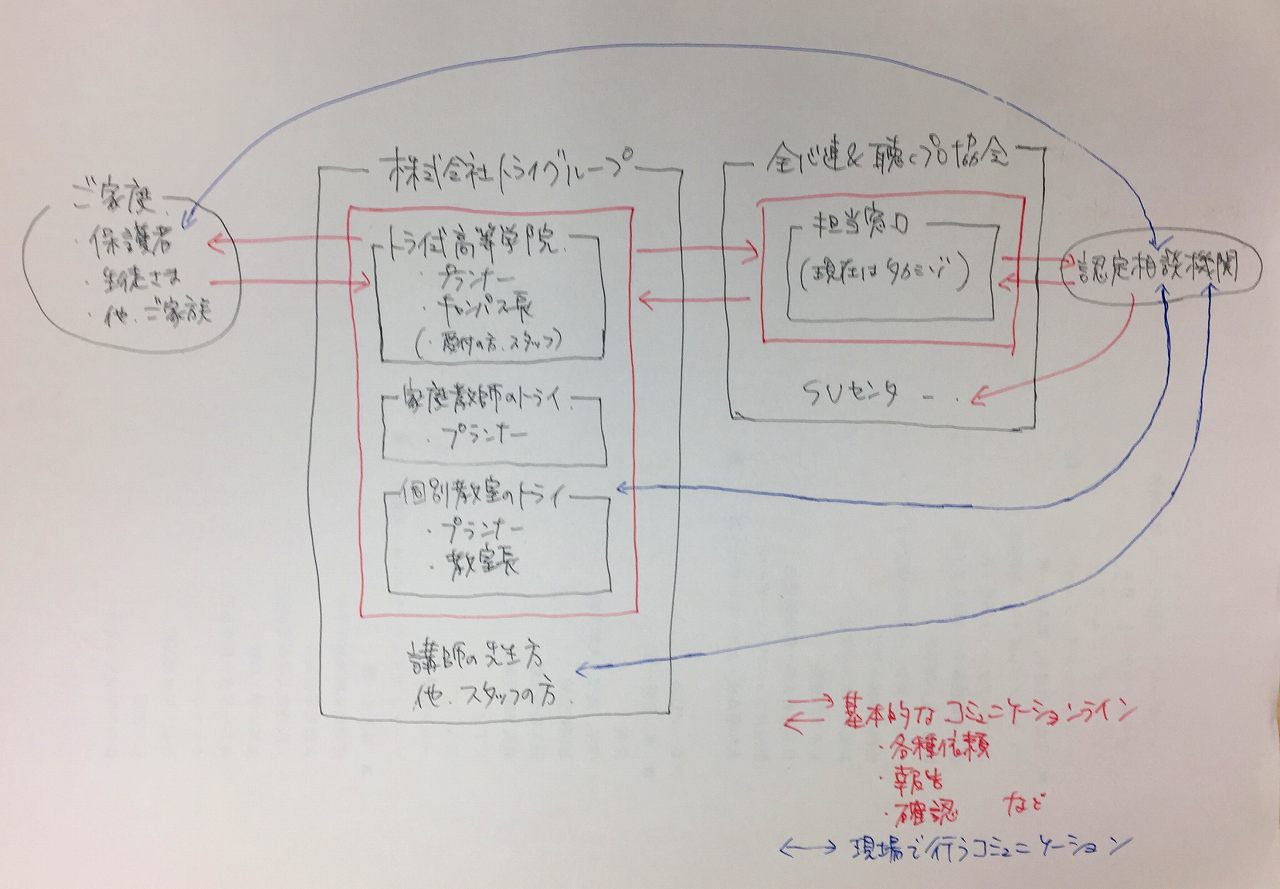 ご家庭
・保護者
・生徒さま
・他、ご家族
株式会社トライグループ
トライ式高等学院
・プランナー
・キャンパス長
(・受付の方、スタッフ)
家庭教師のトライ
・プランナー
個別教室のトライ
・プランナー
・教室長
講師の先生方
他、スタッフの方
全心連&聴くプロ協会
担当窓口
(現在はタカミゾ)
SVセンター
認定相談機関
基本的なコミュニケーションライン
・各種依頼
・報告
・確認 など
現場で行うコミュニケーション